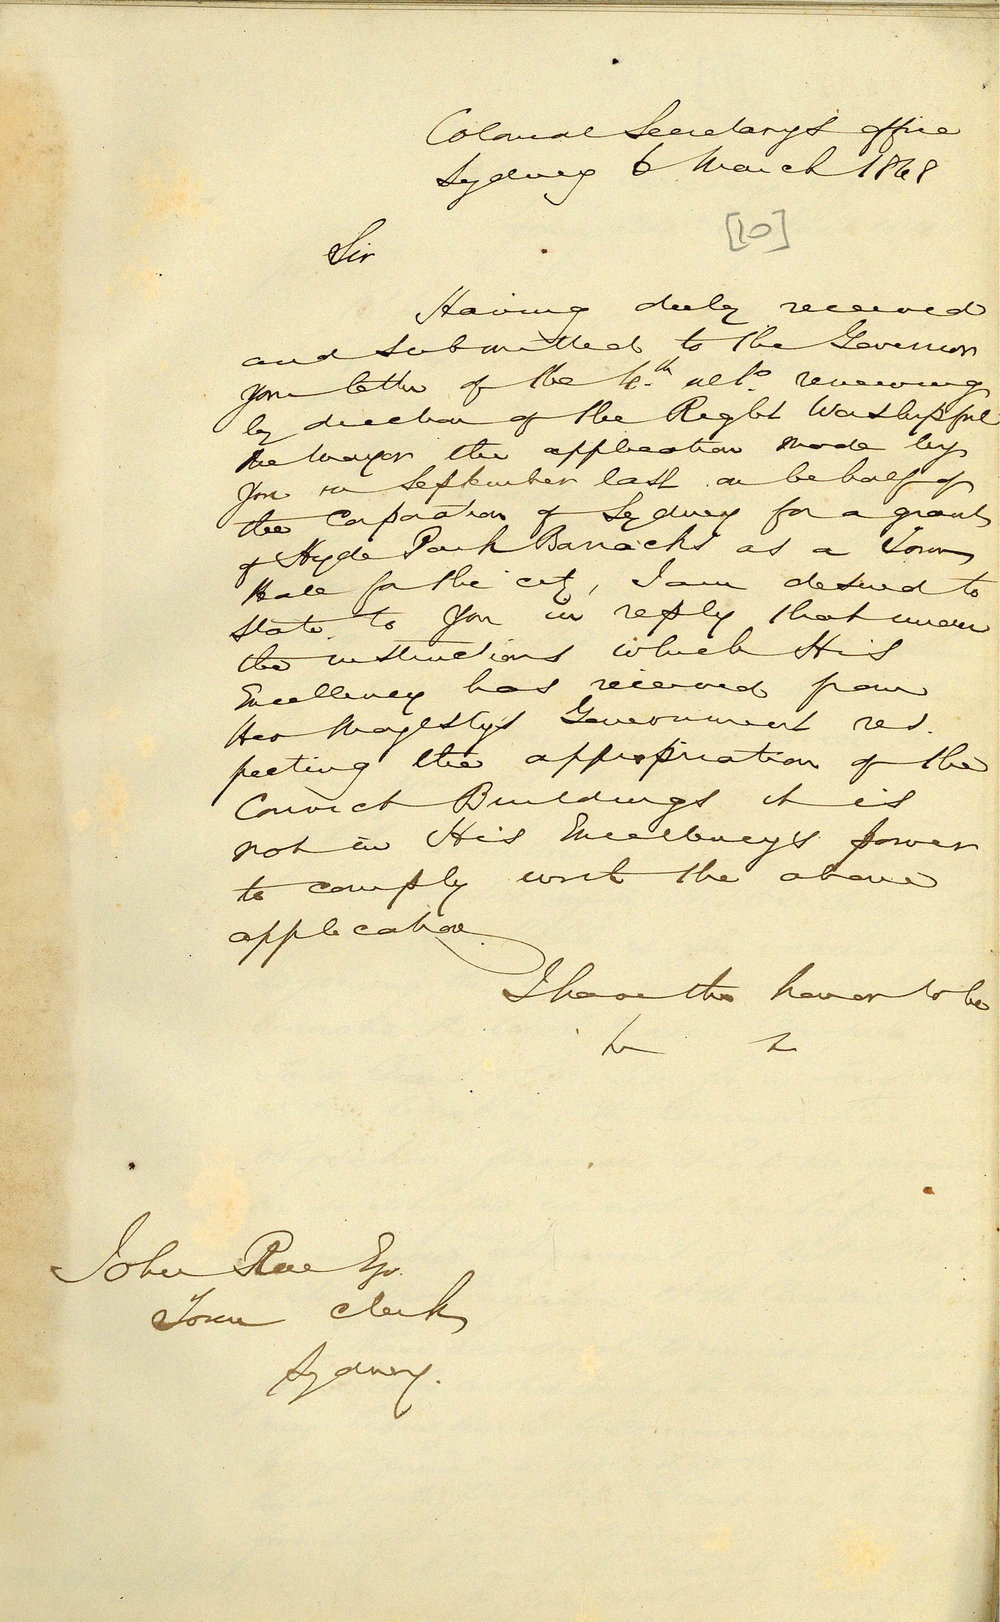 Colonial Secretary's Office
Sydney 6 March 1848
[10]
Sir
Having duly received
and submitted to the Governor
your letter of the 4.th ulto. renewing
by direction of the Right Worshipful
the Mayor the application made by
you in September last on behalf of
the Corporation of Sydney for a grant
of Hyde Park Barracks as a Town
Hall for the city, I am desired to
state to you in reply that under
the instructions which His
Excellency has received from
Her Majesty's Government res.
pecting the appropriation of the
Convict Buildings it is
not in His Excellency's power
to comply with the above
application
I have the honor to be
John Rae Esqr.
Town Clerk
Sydney.